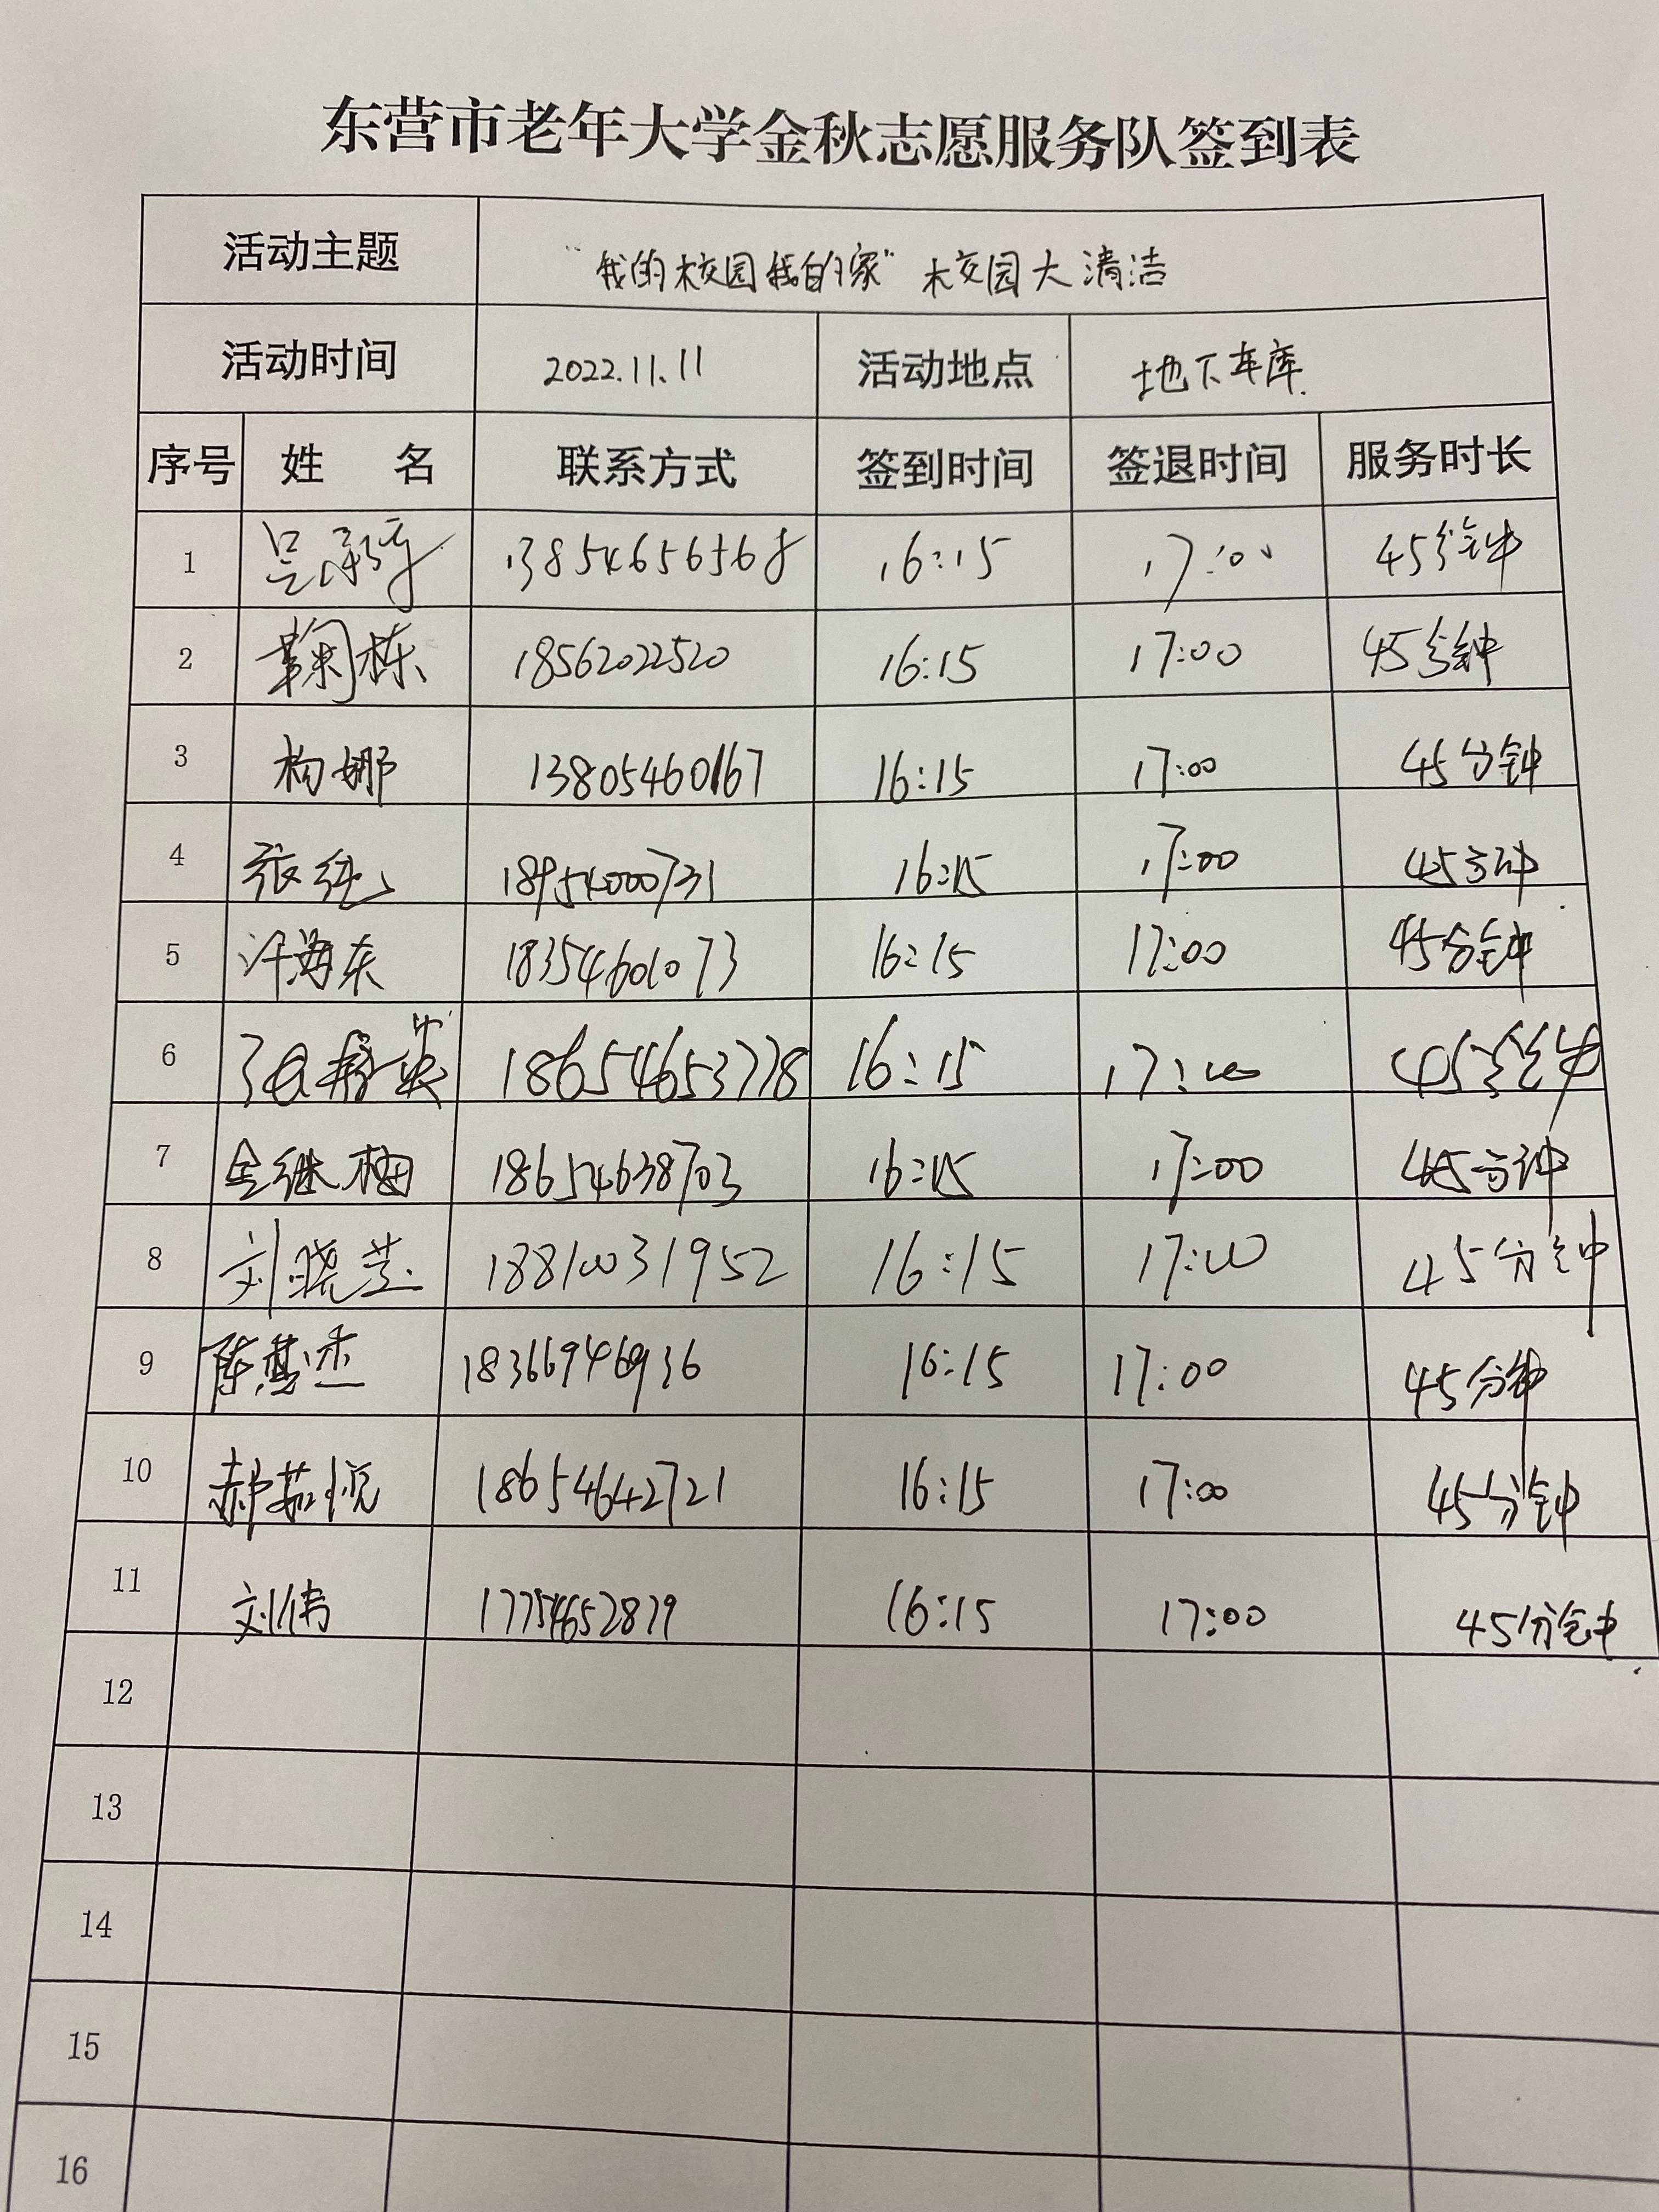 东营市老年大学金秋志愿服务队签到表
活动主题 “我的校园我的家”校园大清洁
活动时间 2022.11.11 活动地点 地下车库
序号 姓 名 联系方式 签到时间 签退时间 服务时长
1 13854656568 16:15 17:00 45分钟
2 鞠栋 18562022520 16:15 17:00 45分钟
3 杨娜 13805460167 16:15 17:00 45分钟
4 张纯 18954000731 16:15 17:00 45分钟
5 许海东 18354601073 16:15 17:00 45分钟
6 18654653778 16:15 17:00 45分钟
7 金继梅 18654638703 16:15 17:00 45分钟
8 刘晓芸 18810031952 16:15 17:00 45分钟
9 陈慧杰 18366946936 16:15 17:00 45分钟
10 郝茹悦 18654642721 16:15 17:00 45分钟
11 刘伟 17754652879 16:15 17:00 45分钟
12
13
14
15
16